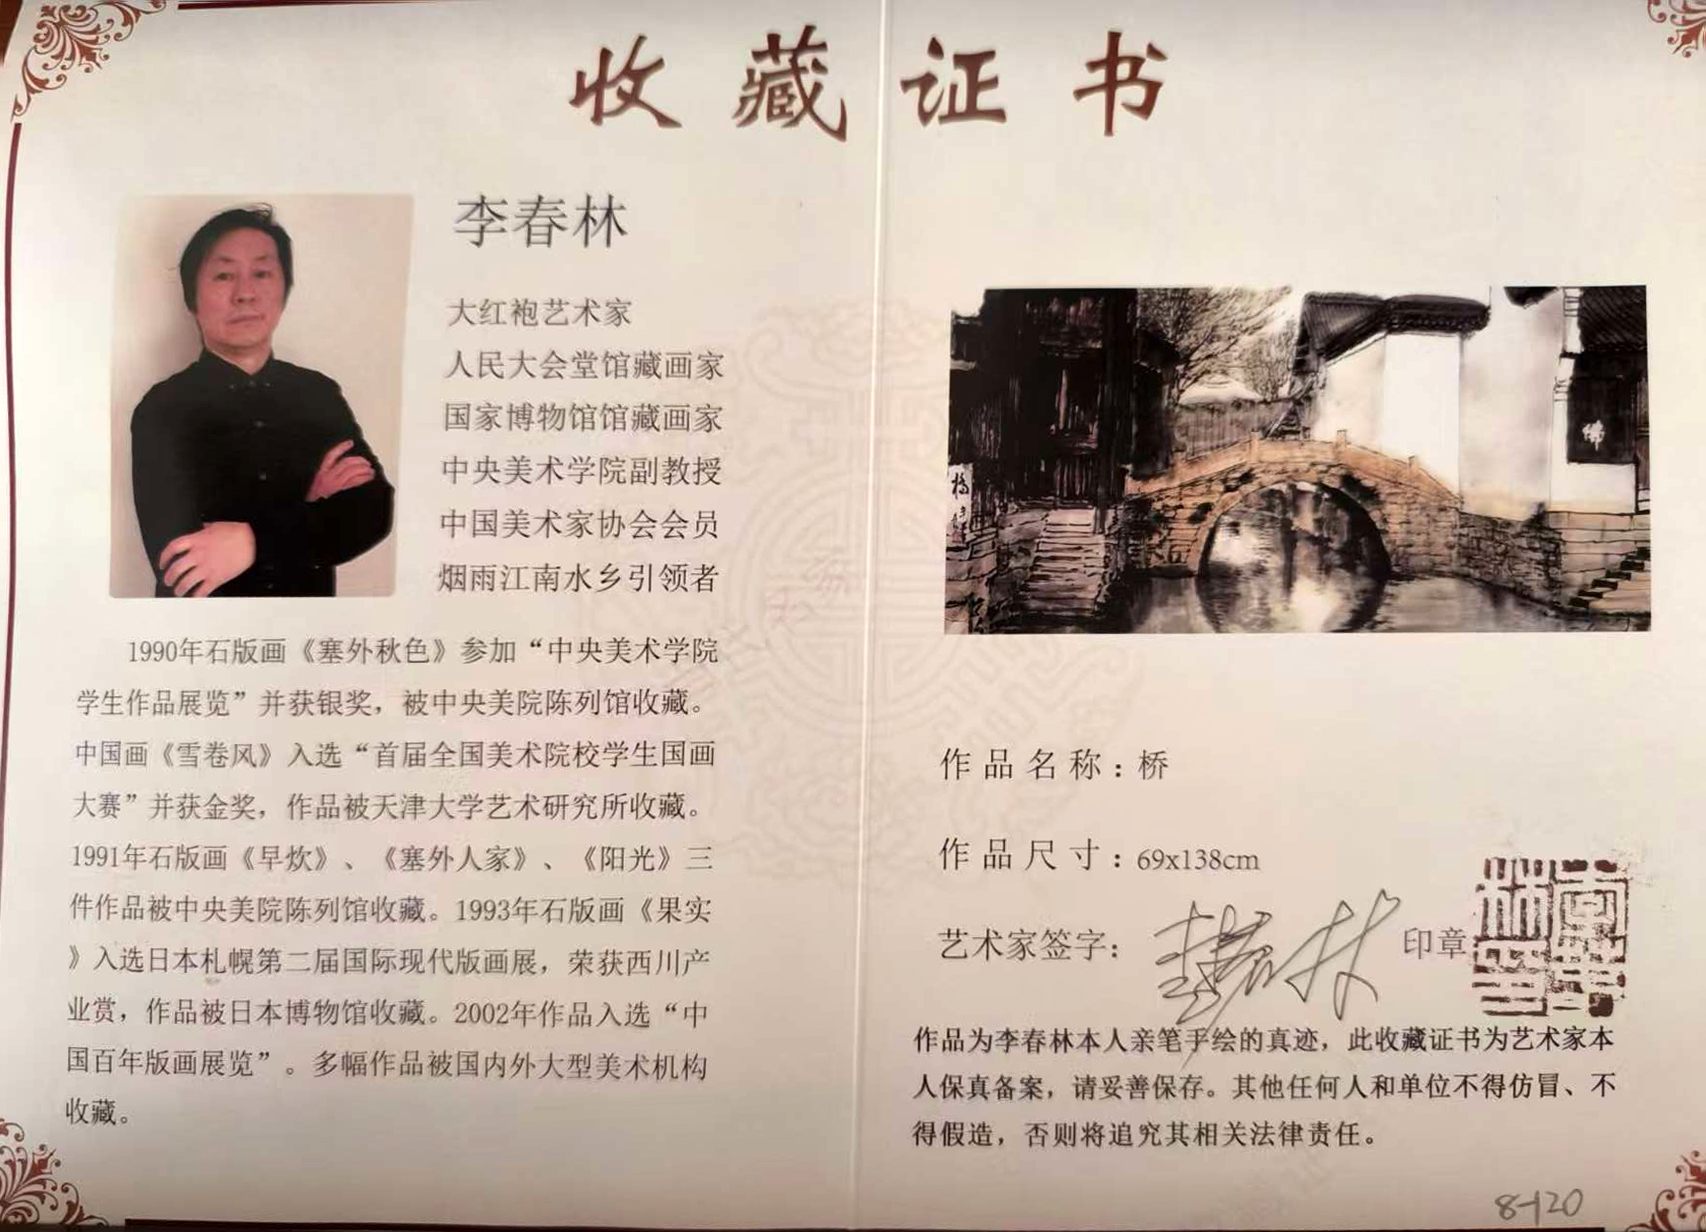 收藏证书
李春林
大红袍艺术家
人民大会堂馆藏画家
国家博物馆馆藏画家
中央美术学院副教授
中国美术家协会会员
烟雨江南水乡引领者
1990年石版画《塞外秋色》参加“中央美术学院
学生作品展览”并获银奖，被中央美院陈列馆收藏。
中国画《雪卷风》入选“首届全国美术院校学生国画
大赛”并获金奖，作品被天津大学艺术研究所收藏。
1991年石版画《早炊》、《塞外人家》、《阳光》三
件作品被中央美院陈列馆收藏。1993年石版画《果实
》入选日本札幌第二届国际现代版画展，荣获西川产
业赏，作品被日本博物馆收藏。2002年作品入选“中
国百年版画展览”。多幅作品被国内外大型美术机构
收藏。
佛
作品名称：桥
作品尺寸：69x138cm
艺术家签字：李春林 印章
作品为李春林本人亲笔手绘的真迹，此收藏证书为艺术家本
人保真备案，请妥善保存。其他任何人和单位不得仿冒、不
得假造，否则将追究其相关法律责任。
8-120